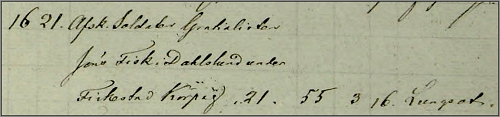 16 21. Afsk. Soldaten Gratialisten
Jöns Fisk i Dahlslund under
Fickestad Körpij .21. 55 3 16. Lungsot.